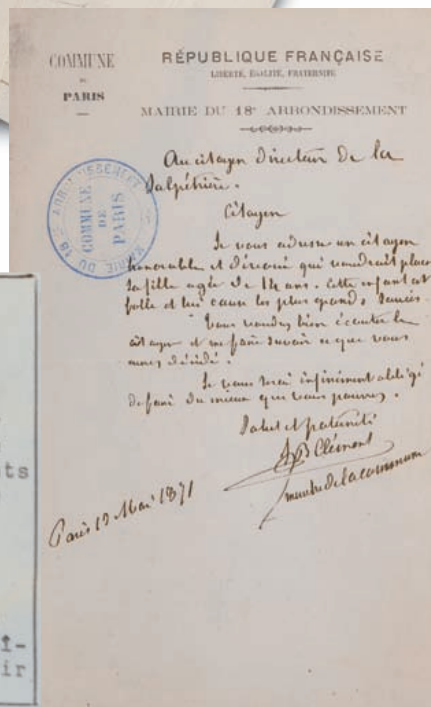 COMMUNE
DE
PARIS
RÉPUBLIQUE FRANÇAISE
LIBERTÉ, ÉGALITÉ, FRATERNITÉ
MAIRIE DU 18e ARRONDISSEMENT
MAIRIE DU 18e ARRONDISSEMENT
COMMUNE
DE
PARIS
Au citoyen Directeur de la
Salpétrière.
Citoyen
Je vous adresse un citoyen
honorable et dévoué qui voudrait placer
sa fille agée de 14 ans. Cette enfant est
folle et lui cause les plus grands
Vous voudrez bien écouter le
citoyen et me faire savoir ce que vous
aurez décidé.
Je vous serai infiniment obligé
de faire du mieux que vous pourrez.
Salut et fraternité
JB Clément
membre de la commune
Paris Mai 1871
ts
i-
ir